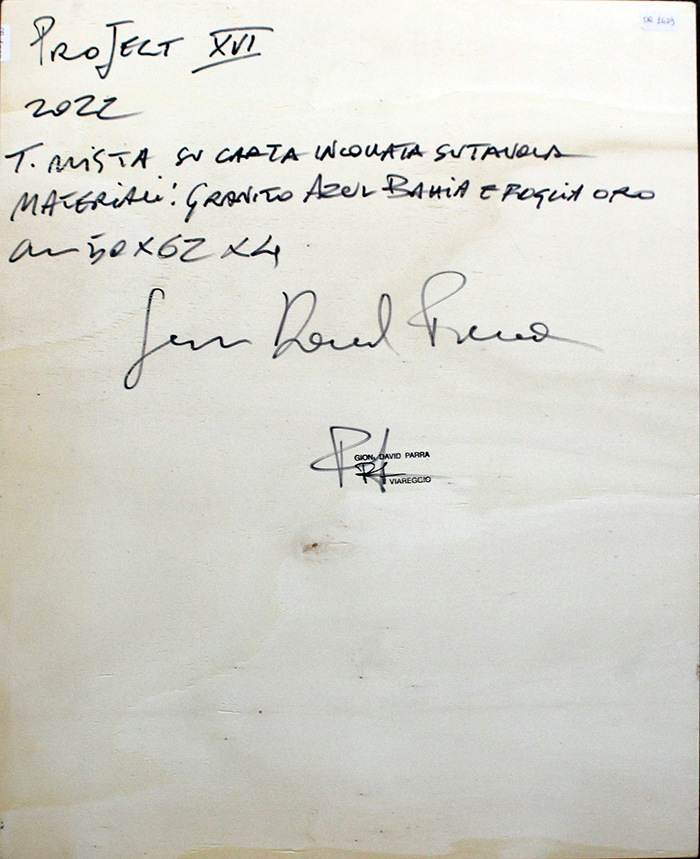 DR 1629
PROJECT XVI
2022
T. MISTA SU CARTA INCOLLATA SU TAVOLA
MATERIALI: GRANITO AZUL BAHIA E FOGLIA ORO
cm 50 X 62 X 4
Gion David Parra
GION. DAVID PARRA
VIAREGGIO